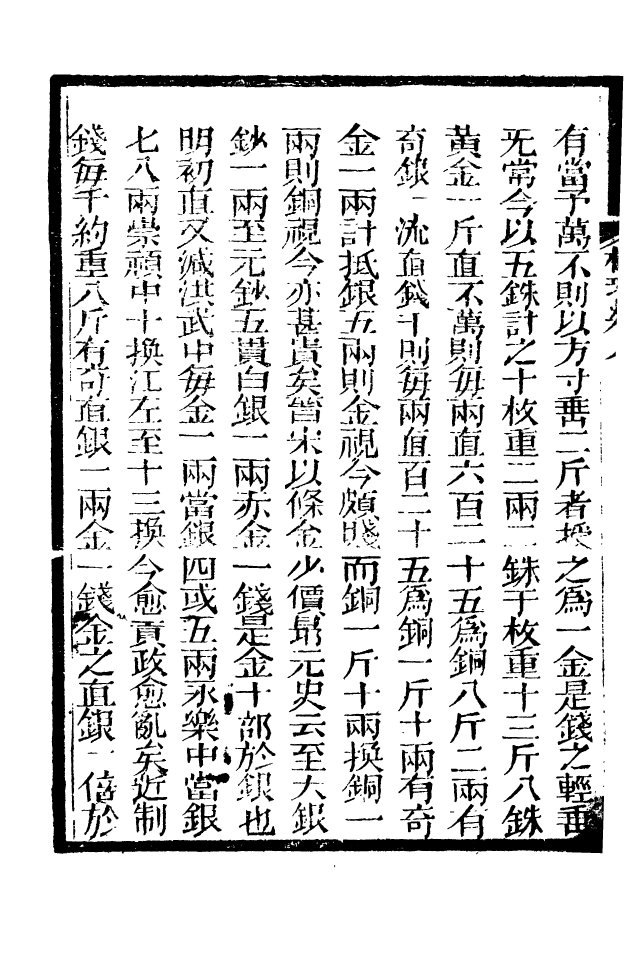 有當千萬不則以方寸重二斤者授之爲一金是錢之輕重
无常今以五銖計之十枚重二兩二銖千枚重十三斤八銖
黃金一斤直不萬則每兩直六百二十五爲銅八斤二兩有
奇銀一流直錢千則每兩直百二十五爲銅一斤十兩有奇
金一兩計抵銀五兩則金視今頗賤而銅一斤十兩換銅一
兩則銅視今亦甚貴矣昔宋以條金少價昂元史云至大銀
鈔一兩至元鈔五貫白銀一兩赤金一錢是金十部於銀也
明初直又減洪武中每金一兩當銀四或五兩永樂中當銀
七八兩崇禎中十換江左至十三換今愈貢政愈亂矣近制
錢每千約重八斤有奇直銀一兩金一錢金之直銀一倍於